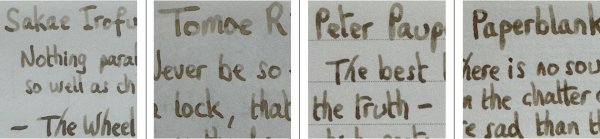 Sakae Irofu
Nothing paral
so well as ch
– The Wheel
Tomoe R
Never be so
lock, that
Peter Paup
The best
the truth –
Paperblank
here is no sou
n the chatter
e sad than th